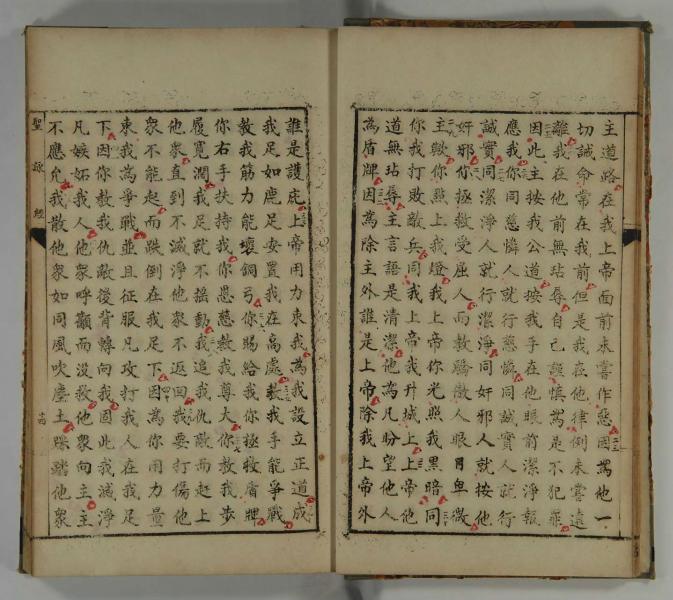 主道路在我上帝面前未嘗作惡因為他一
切誡命常在我前但是我在他律例未嘗遠
離我在他前無玷辱自己謹慎為是不犯罪
因此主按我公道按我手在他眼前潔淨報
應我你同慈憐人就行慈憐同誠實人就行
誠實同潔淨人就行潔淨同奸邪人就按他
奸邪你拯救受屈人而教驕傲人眼目卑微
主歟你點上我燈我上帝你光照我黑暗同
你我打敗敵兵同我上帝我升城上上帝他
道無玷辱主言語是清潔他為凡盼望他人
為盾牌因為除主外誰是上帝除我上帝外
誰是護庇上帝用力束我為我設立正道成
我足如鹿足安置我在高處教我手能爭戰
教我筋力能壞銅弓你賜給我你拯救盾牌
你右手扶持我你恩慈教我尊大你教我步
履寬濶我足就不搖動我追我仇敵而赶上
他衆直到不滅淨他衆不返回我要打傷他
衆不能起而跌倒在我足下因為你用力量
束我為爭戰並且征服凡攻打我人在我足
下因你教我仇敵後背轉向我因此我滅淨
凡嫉妬我人他衆呼籲而沒救他衆向主主
不應允我散他衆如同風吹塵土踩踏他衆
聖詠經 十四